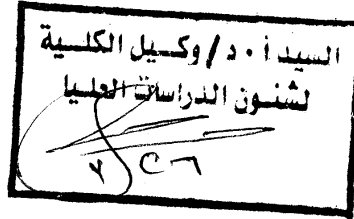 السيد أ . د / وكيل الكلية
لشئون الدراسات العليا
٧ / ٢٦